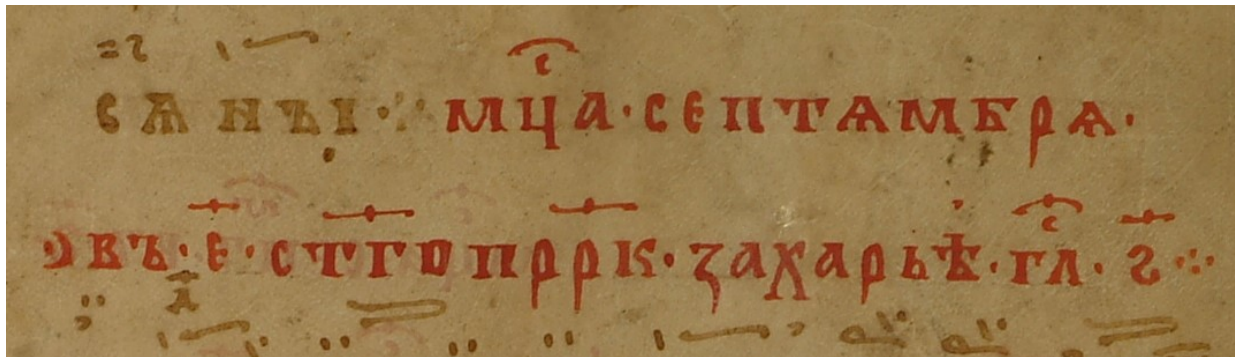 сѧ нъі · мц҇а · септѧмбрѧ ·
въ · е҃ · ст҃го прр҃к · захарьѣ · гл҇ · ꙅ҃ ·